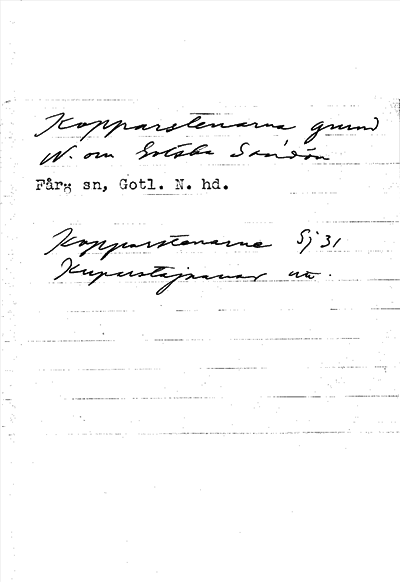 Kopparstenarna grund
N. om Gotska Sandön
Fårö sn, Gotl. N. hd.
Kopparstenarne Sj 31
Kuparstajnanar